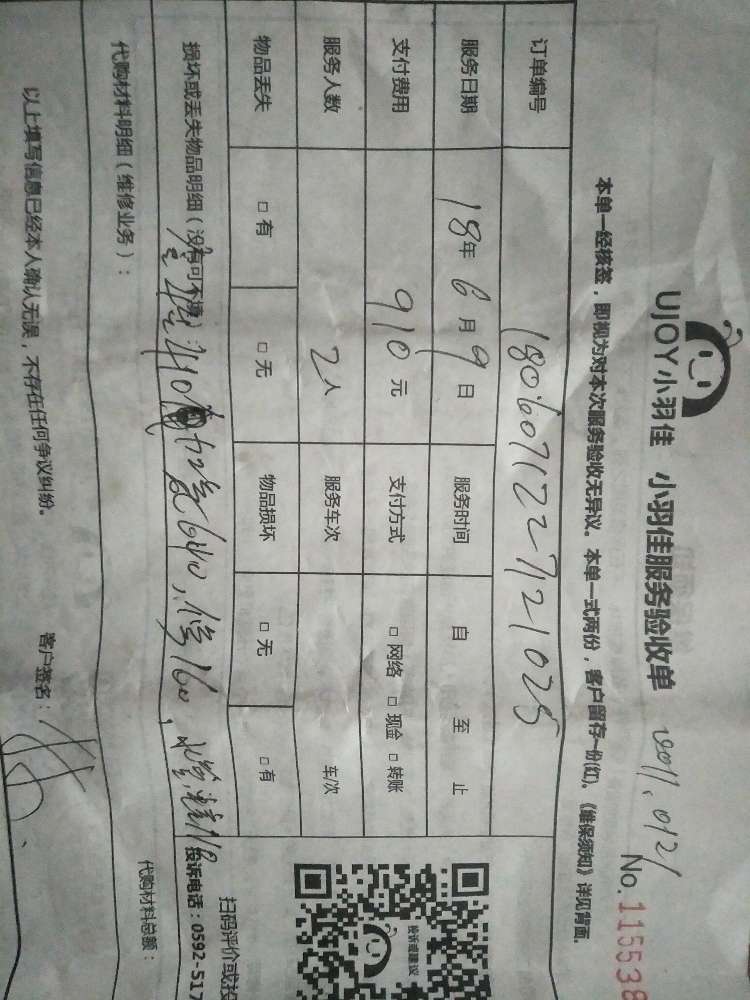 UJOY小羽佳 小羽佳服务验收单
No. 115538
本单一经核签，即视为对本次服务验收无异议。本单一式两份，客户留存一份(红)。《维保须知》详见背面。
订单编号 1806071227121025
服务日期 18年6月9日 服务时间 自 至 止
支付费用 910元 支付方式 □ 网络 □ 现金 □ 转账
服务人数 2人 服务车次 车/次
物品丢失 □ 有 □ 无 物品损坏 □ 无 □ 有
损坏或丢失物品明细（没有可不填）:
代购材料明细（维修业务）:
代购材料总额:
以上填写信息已经本人确认无误，不存在任何争议纠纷。 客户签名:
投诉或建议
扫码评价或投
投诉电话:0592-517